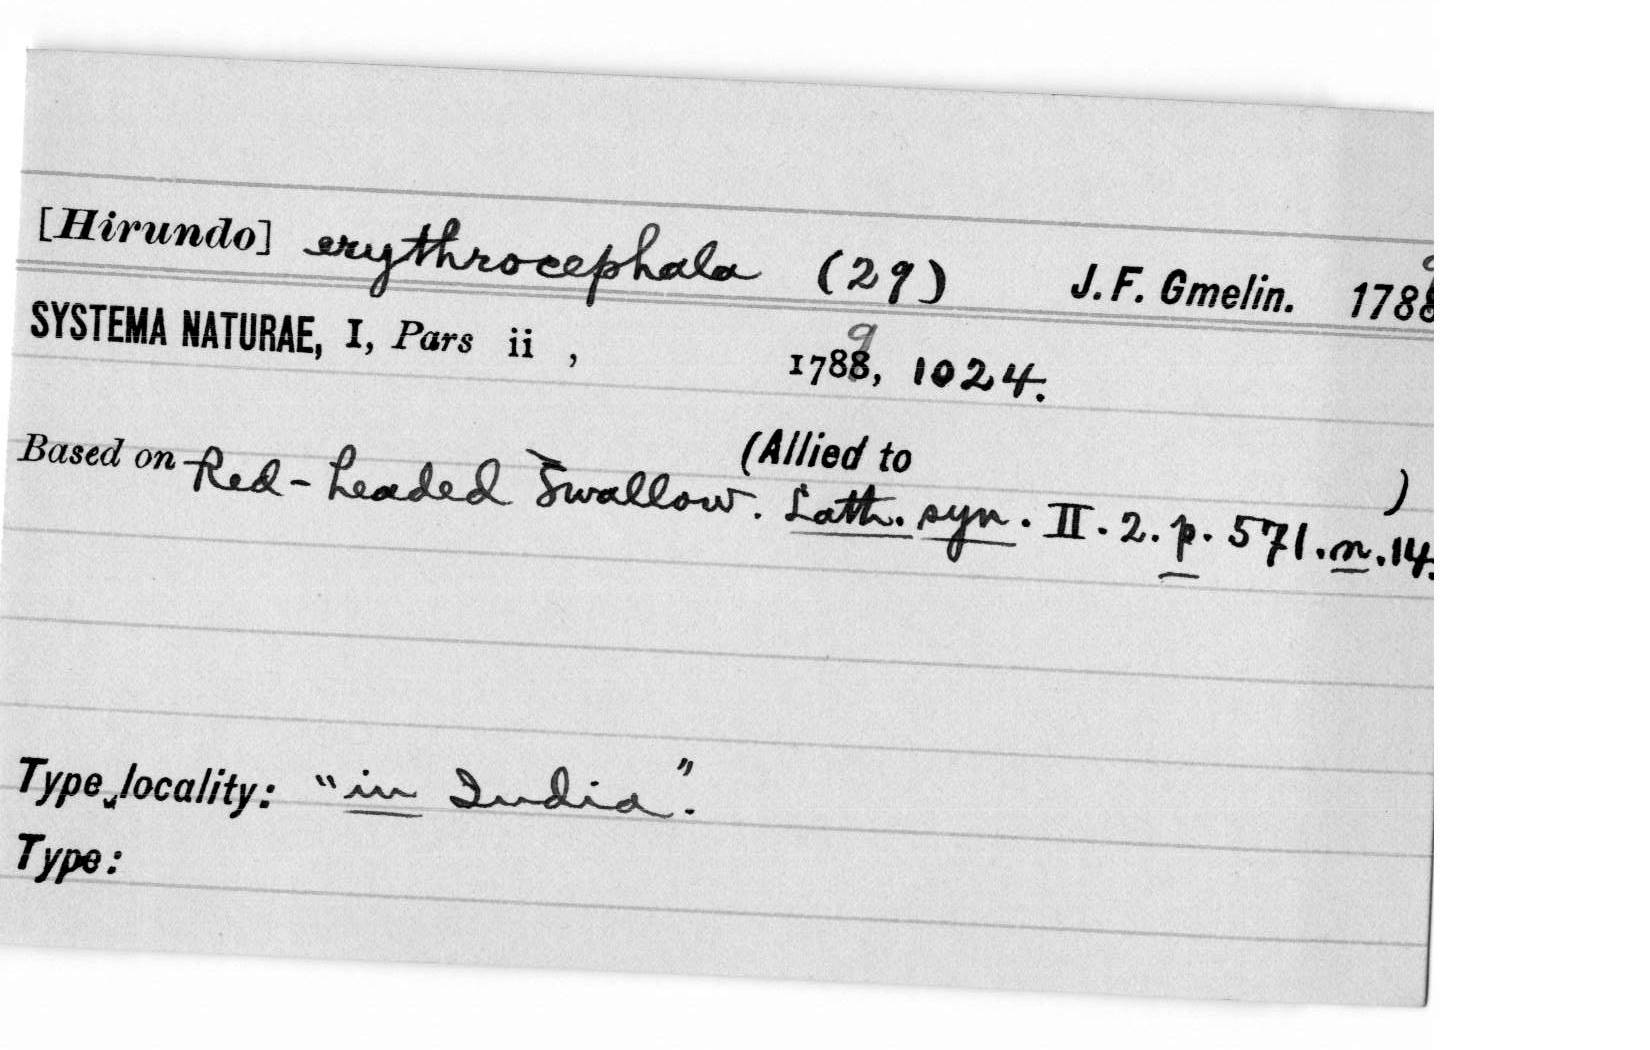 [Hirundo] erythrocephala (29) J. F. Gmelin. 1788
SYSTEMA NATURAE, I, Pars ii , 1788, 9 1024.
(Allied to )
Based on Red-headed Swallow. Lath. syn. II. 2. p. 571. n. 14.
Type locality: "in India".
Type: